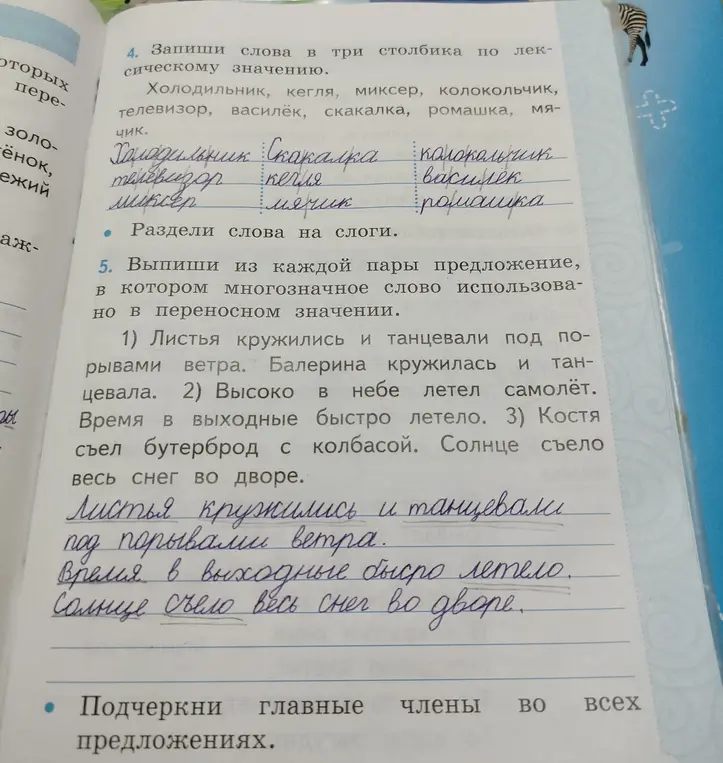 оторых
пере-
золо-
ёнок,
ежий
аж-
4. Запиши слова в три столбика по лек-
сическому значению.
Холодильник, кегля, миксер, колокольчик,
телевизор, василёк, скакалка, ромашка, мя-
чик.
Холодильник Скакалка колокольчик
телевизор кегля василёк
миксер мячик ромашка
• Раздели слова на слоги.
5. Выпиши из каждой пары предложение,
в котором многозначное слово использова-
но в переносном значении.
1) Листья кружились и танцевали под по-
рывами ветра. Балерина кружилась и тан-
цевала. 2) Высоко в небе летел самолёт.
Время в выходные быстро летело. 3) Костя
съел бутерброд с колбасой. Солнце съело
весь снег во дворе.
Листья кружились и танцевали
под порывами ветра.
Время в выходные бысро летело.
Солнце съело весь снег во дворе.
• Подчеркни главные члены во всех
предложениях.